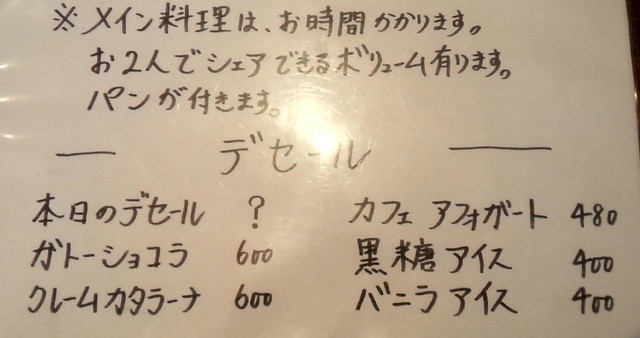 ※メイン料理は、お時間かかります。
お2人でシェアできるボリューム有ります。
パンが付きます。
デセール
本日のデセール ? カフェ アフォガート 480
ガトーショコラ 600 黒糖アイス 400
クレームカタラーナ 600 バニラアイス 400